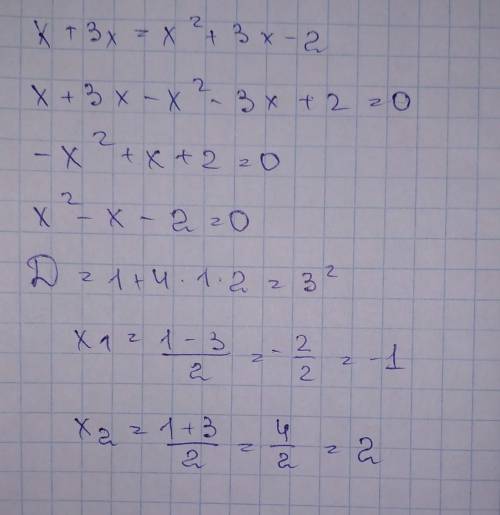 x + 3x = x² + 3x - 2
x + 3x - x² - 3x + 2 = 0
- x² + x + 2 = 0
x² - x - 2 = 0
D = 1 + 4 · 1 · 2 = 3²
x₁ = (1 - 3)/2 = - 2/2 = -1
x₂ = (1 + 3)/2 = 4/2 = 2